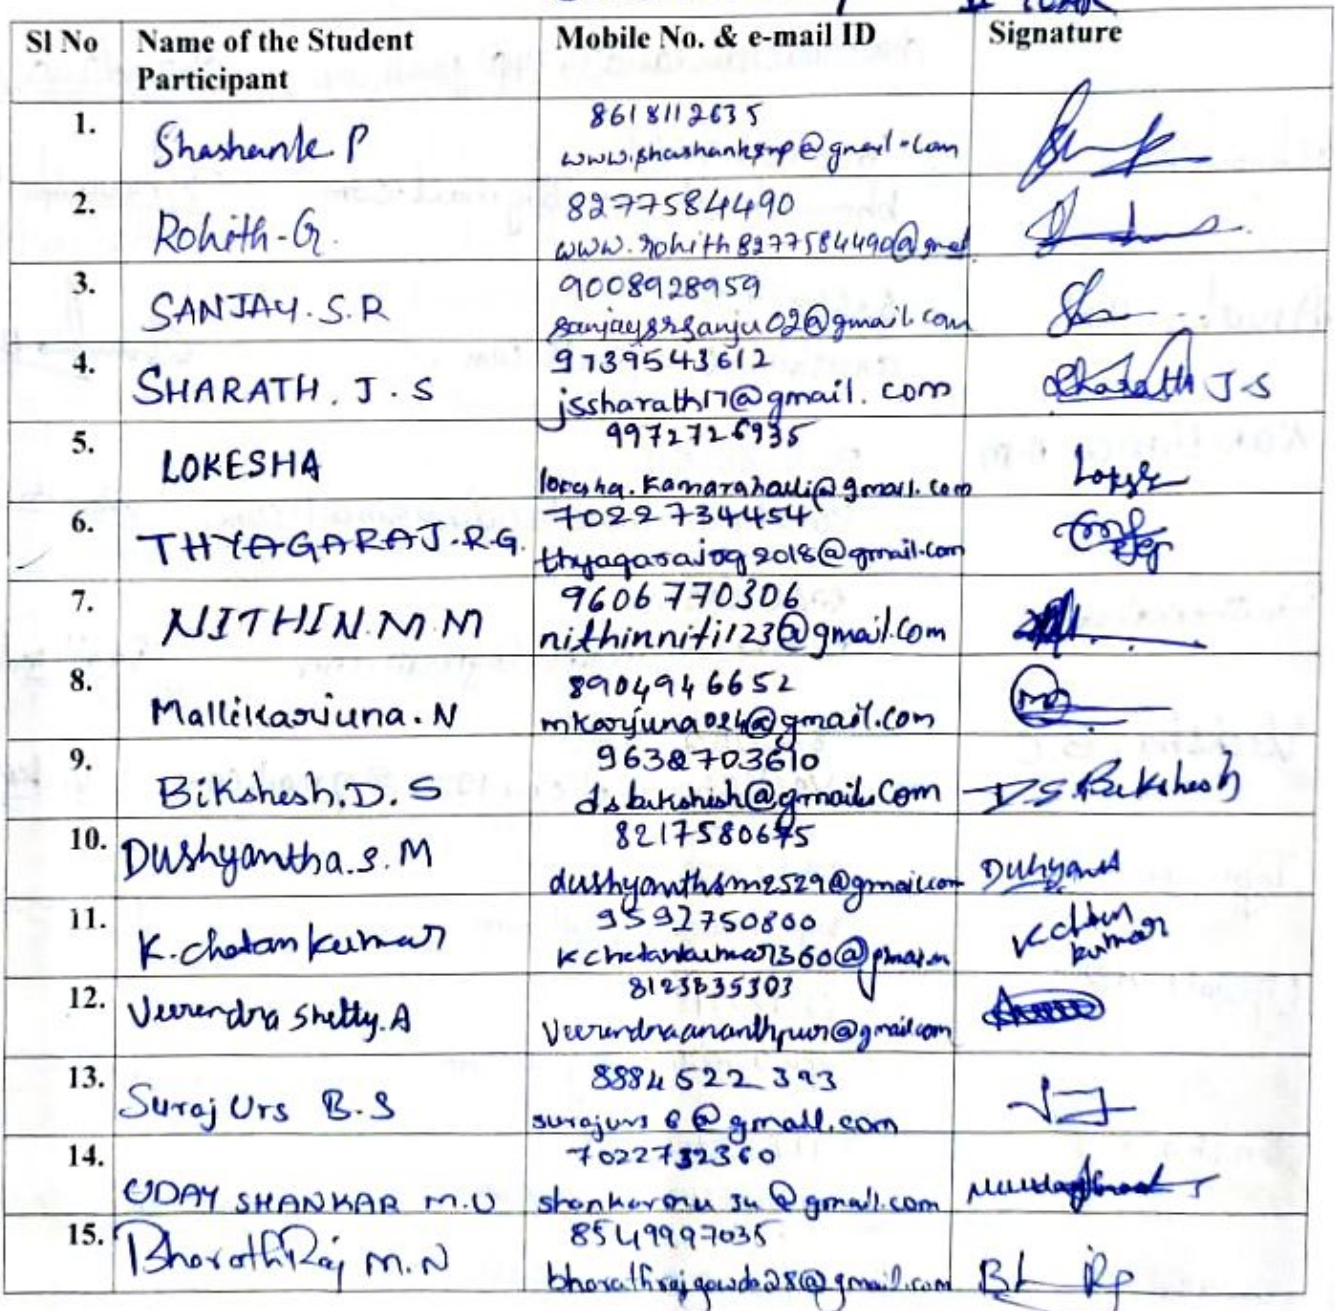 II YEAR
Sl No Name of the Student Participant Mobile No. & e-mail ID Signature
1. Shashank. P 8618112635
www.shashanksnp@gmail.com
2. Rohith-G. 8277584490
www.rohith8277584490@gmail
3. SANJAY.S.R 9008928959
sanjaysrsanju02@gmail.com
4. SHARATH. J. S 9739543612
jssharath17@gmail.com Sharath J-S
5. LOKESHA 9972726935
lokesha.kamarahalli@gmail.com
6. THYAGARAJ.R.G. 7022734454
thyagarajrg2018@gmail.com
7. NITHIN.M.M 9606770306
nithinniti123@gmail.com
8. Mallikarjuna. N 8904946652
mkarjuna024@gmail.com
9. Bikshesh.D. S 9638703610
dsbikshesh@gmail.com D.S.Bikshesh
10. Dushyantha.S.M 8217580675
dushyanthsm2529@gmail.com Duhyant
11. K. chetan kumar 9592750800
kchetankumar1360@gmail K chtan kumar
12. Veerendra Shetty.A 8123835303
Veerendraananthpur@gmail.com
13. Suraj Urs B.S 8884522393
surajurs6@gmail.com
14. UDAY SHANKAR M.U 7022732360
shankarmu34@gmail.com
15. BharathRaj M.N 8549997035
bharathrajgowda28@gmail.com